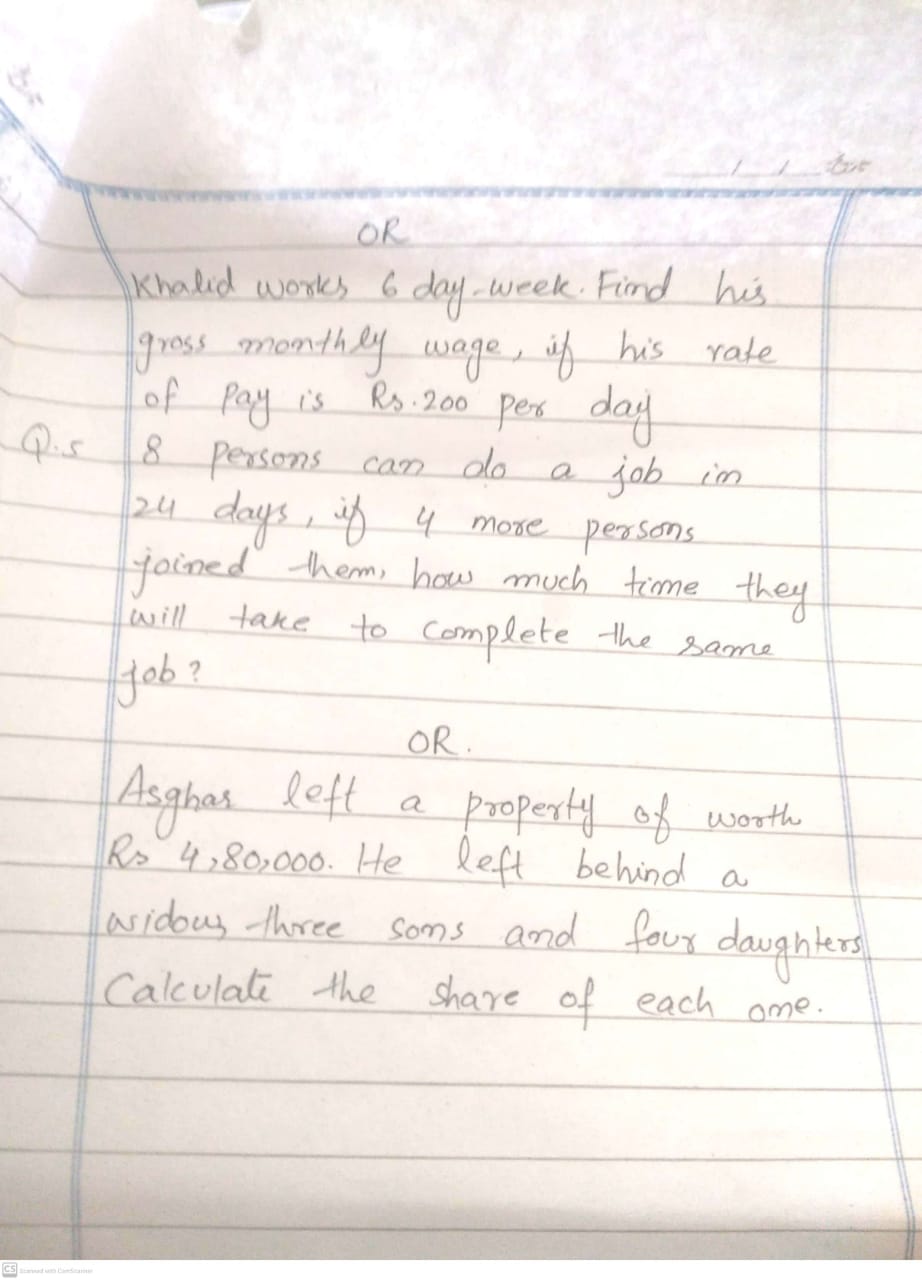 OR
Khalid works 6 day-week. Find his
gross monthly wage, if his rate
of Pay is Rs.200 per day
Q.5 8 persons can do a job in
24 days, if 4 more persons
joined them, how much time they
will take to complete the same
job?
OR.
Asghar left a property of worth
Rs 4,80,000. He left behind a
widow, three sons and four daughters
Calculate the share of each one.
CS Scanned with CamScanner